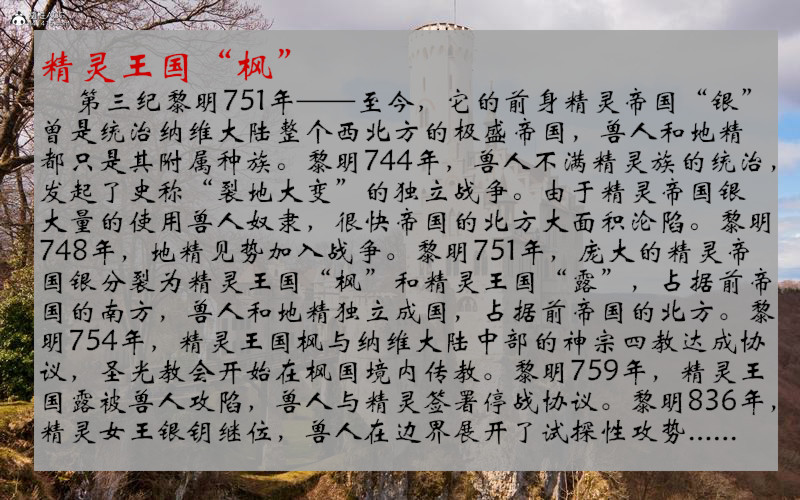 精灵王国“枫”
第三纪黎明751年——至今，它的前身精灵帝国“银”
曾是统治纳维大陆整个西北方的极盛帝国，兽人和地精
都只是其附属种族。黎明744年，兽人不满精灵族的统治，
发起了史称“裂地大变”的独立战争。由于精灵帝国银
大量的使用兽人奴隶，很快帝国的北方大面积沦陷。黎明
748年，地精见势加入战争。黎明751年，庞大的精灵帝
国银分裂为精灵王国“枫”和精灵王国“露”，占据前帝
国的南方，兽人和地精独立成国，占据前帝国的北方。黎
明754年，精灵王国枫与纳维大陆中部的神宗四教达成协
议，圣光教会开始在枫国境内传教。黎明759年，精灵王
国露被兽人攻陷，兽人与精灵签署停战协议。黎明836年，
精灵女王银钥继位，兽人在边界展开了试探性攻势……